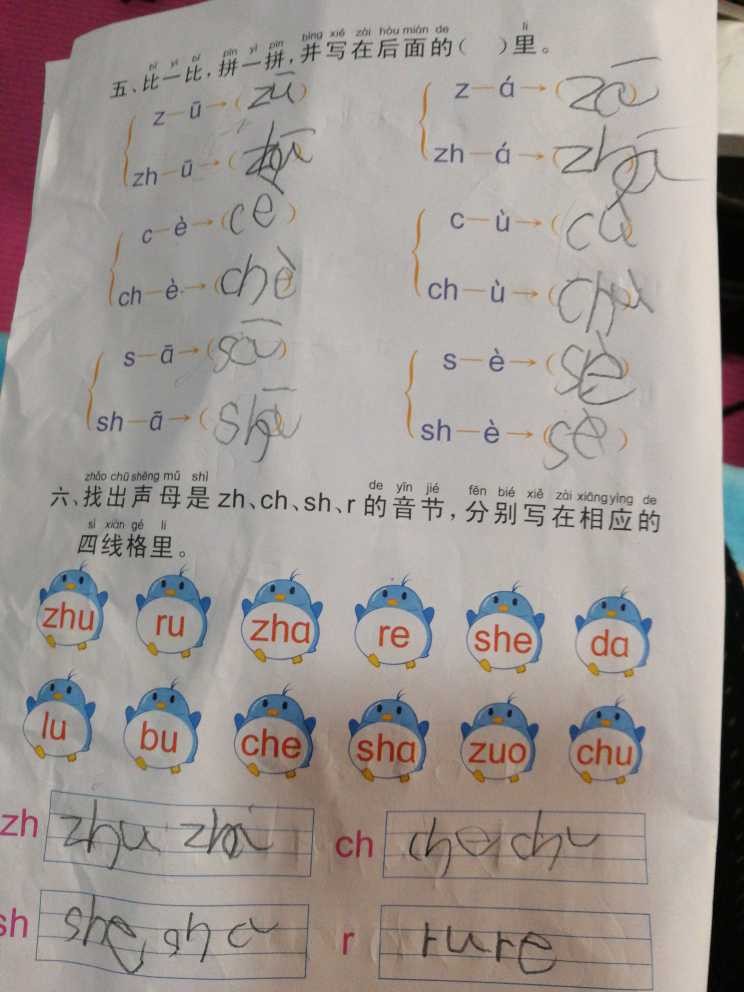 bǐ yì bǐ pīn yì pīn bìng xiě zài hòu miàn de li
五、比一比,拼一拼,并写在后面的( )里。
z—ū→(zū) z—á→(zā)
zh—ū→( ) zh—á→(zhā)
c—è→(cè) c—ù→(cù)
ch—è→(chè) ch—ù→(chù)
s—ā→(sā) s—è→(sè)
sh—ā→(shā) sh—è→(sè)
zhǎo chū shēng mǔ shì de yīn jié fēn bié xiě zài xiāng yìng de
六、找出声母是 zh、ch、sh、r 的音节,分别写在相应的
sì xiàn gé li
四线格里。
zhu ru zha re she da
lu bu che sha zuo chu
zh zhu zha ch che chu
sh she sha r ru re